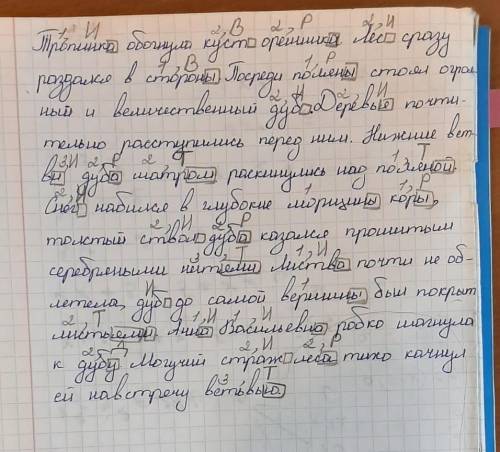 Тропинка обогнула куст орешника. Лес сразу
раздался в стороны. Посреди поляны стоял огром
ный и величественный дуб. Деревья почти-
тельно расступились перед ним. Нижние вет-
ви дуба шатром раскинулись над поляной.
Снег набился в глубокие морщины коры,
толстый ствол дуба казался прошитым
серебряными нитеми. Листва почти не об-
летела, дуб до самой вершины был покрыт
листьеми. Анна Васильевна робко шагнула
к дубу. Могучий страж леса тихо качнул
ей навстречу ветьвью.